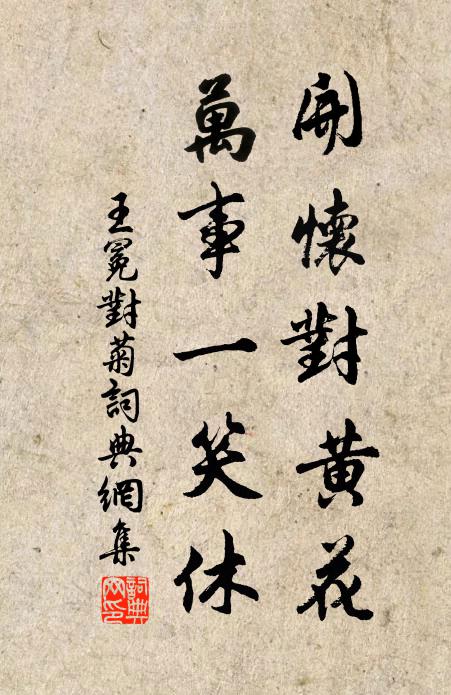 開懷對黃花
萬事一笑休
王冕對菊詞典網集
詞典
網印